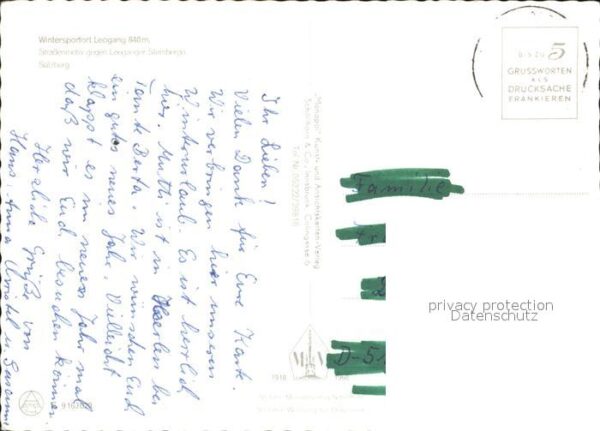 Wintersportort Leogang 840 m.
Straßenmotiv gegen Leoganger Steinberge
Salzburg
BIS ZU 5
GRUSSWORTEN
ALS
DRUCKSACHE
FRANKIEREN
Ihr Lieben!
Vielen Dank für Eure Karte.
Wir verbringen hier unseren
Winterurlaub. Es ist herrlich
hier. Mutti ist in bei
Tante Berta. Wir wünschen Euch
ein gutes neues Jahr. Vielleicht
klappt es im neuen Jahr mal
daß wir Euch besuchen können.
Herzliche Grüße von
Hans, Anna
Kunst- und Ansichtskarten-Verlag
Familie
D-5
1918
privacy protection
Datenschutz